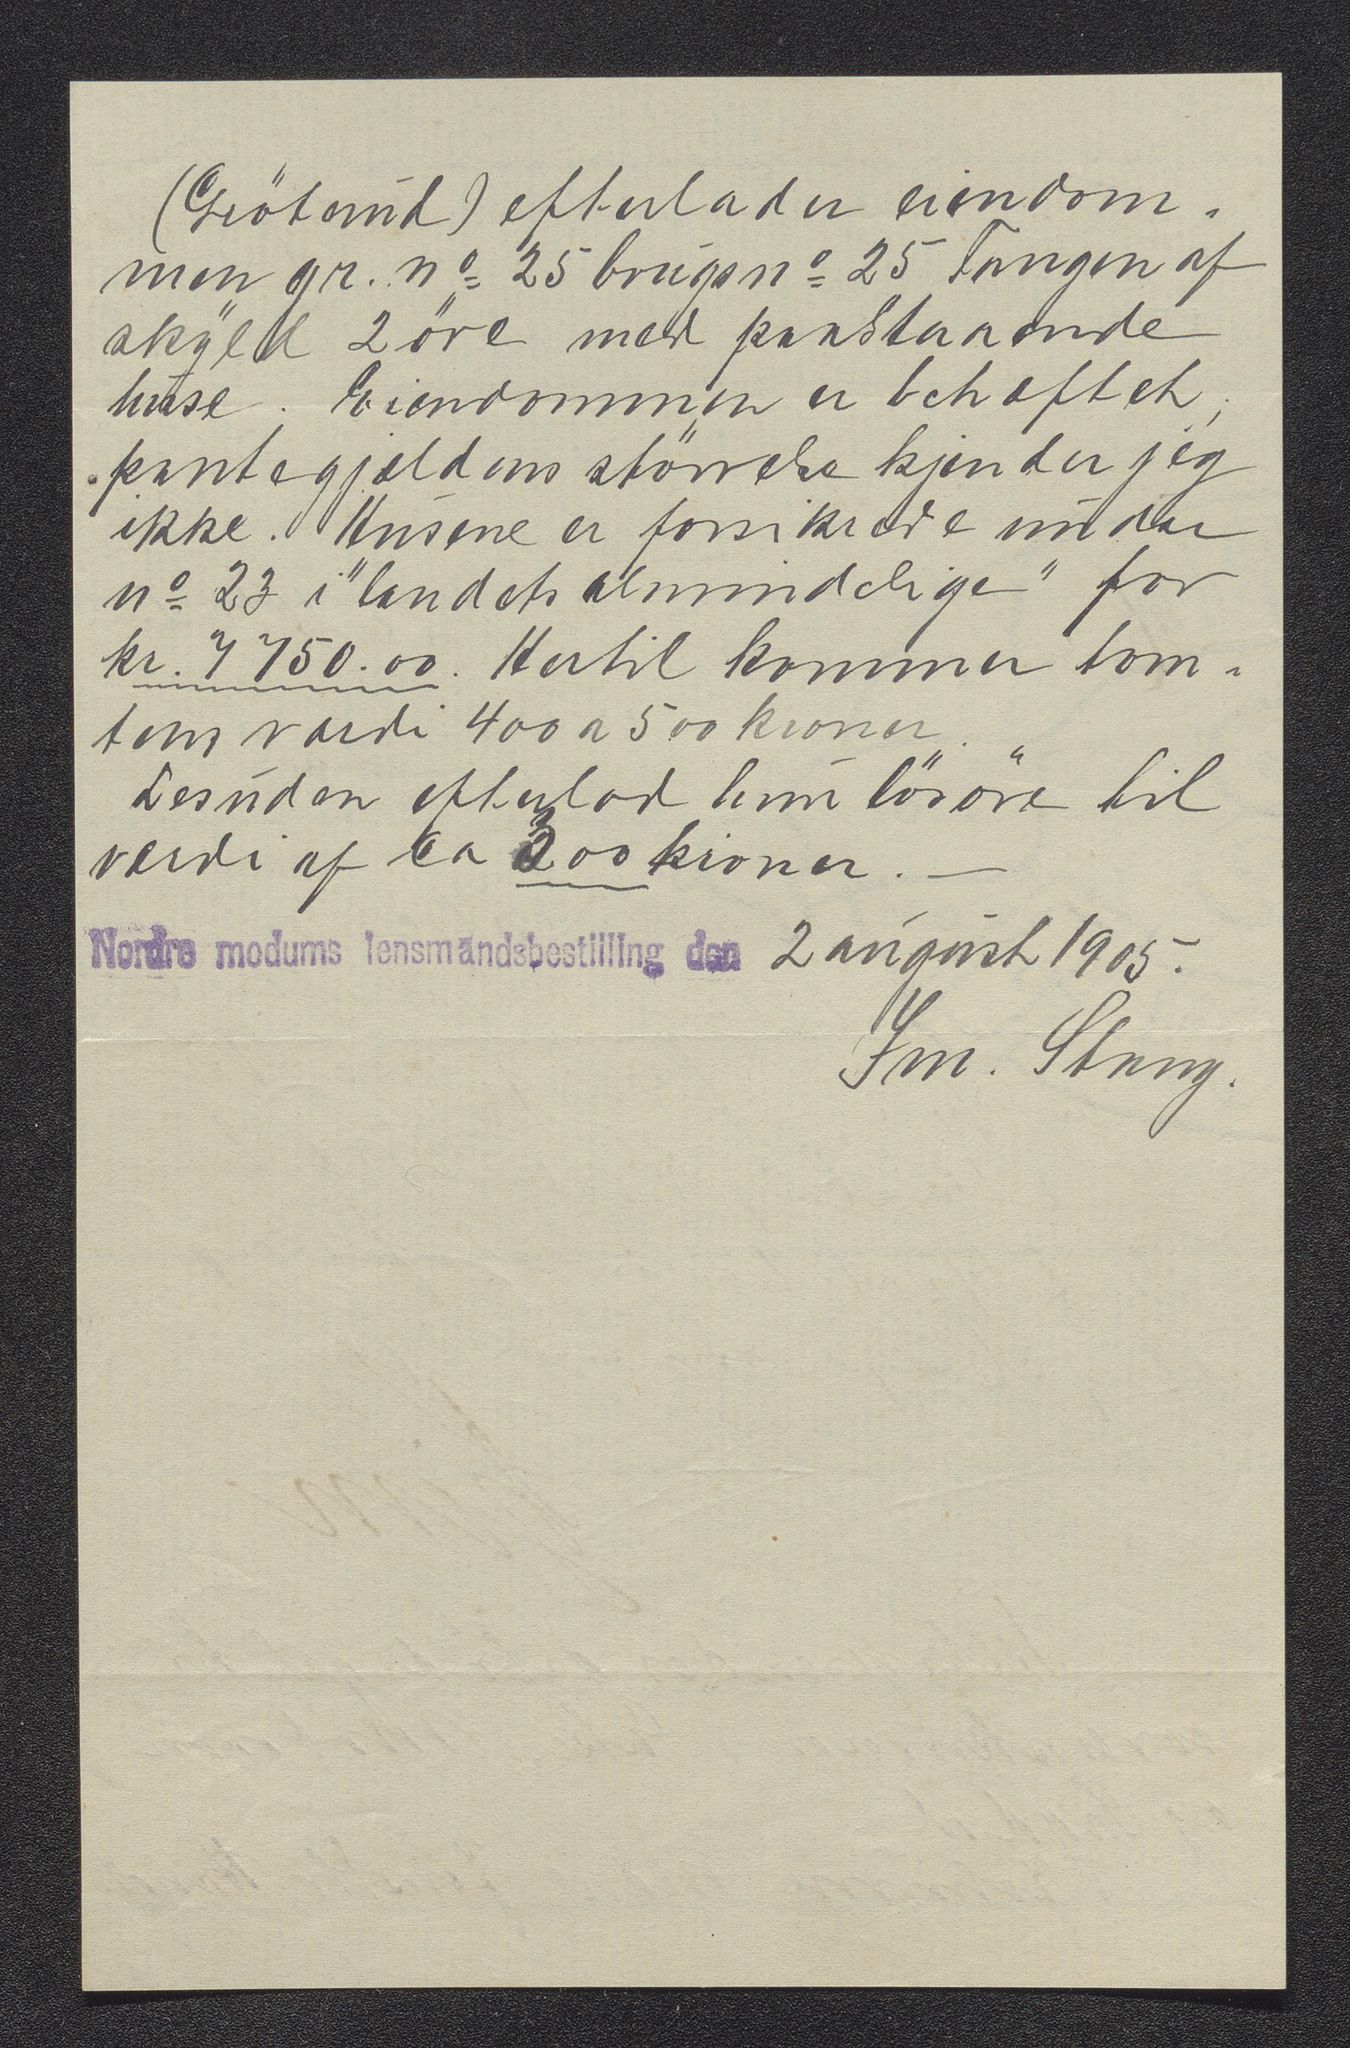 (Gröterud) efterlader eiendom-
men gr. no 25 brugsno 25 Tangen af
skyld 2 öre med paastaaende
huse. Eiendommen er beheftet,
pantegjældens störrelse kjender jeg
ikke. Husene er forsikrede under
no 23 i "landets almindelige" for
kr. 7750.00. Hertil kommer tom-
tens værdi 400 a 500 kroner.
Desuden efterlod hun lösöre til
værdi af ca 300 kroner. —
Nordre modums lensmandsbestilling den 2 august 1905.
Im. Stang.